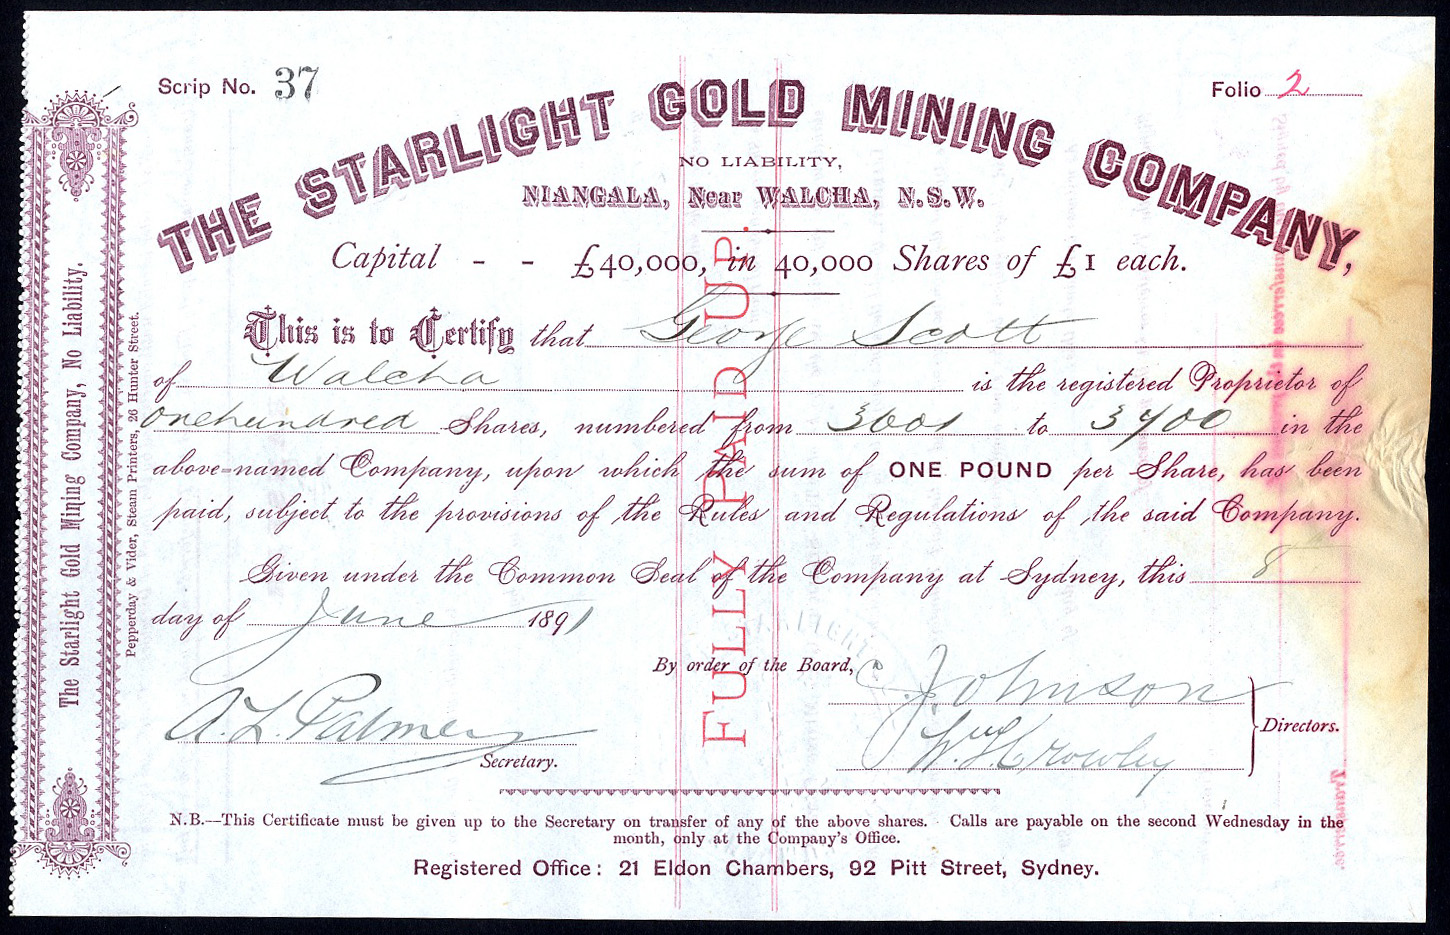 Scrip No. 37
Folio 2
THE STARLIGHT GOLD MINING COMPANY,
NO LIABILITY,
NIANGALA, Near WALCHA, N.S.W.
Capital - - £40,000, in 40,000 Shares of £1 each.
This is to Certify that George Scott
of Walcha is the registered Proprietor of
onehundred Shares, numbered from 3601 to 3700 in the
above-named Company, upon which the sum of ONE POUND per Share, has been
paid, subject to the provisions of the Rules and Regulations of the said Company.
Given under the Common Seal of the Company at Sydney, this 8
day of June 1891
By order of the Board,
Johnson
A. L. Palmer
Secretary.
Crowley
Directors.
N.B.—This Certificate must be given up to the Secretary on transfer of any of the above shares. Calls are payable on the second Wednesday in the
month, only at the Company's Office.
Registered Office: 21 Eldon Chambers, 92 Pitt Street, Sydney.
FULLY PAID UP.
The Starlight Gold Mining Company, No Liability.
Pepperday & Vider, Steam Printers, 26 Hunter Street.